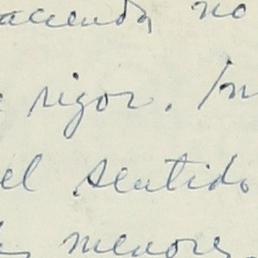 hacienda no
rigor. In
el sentido
menores